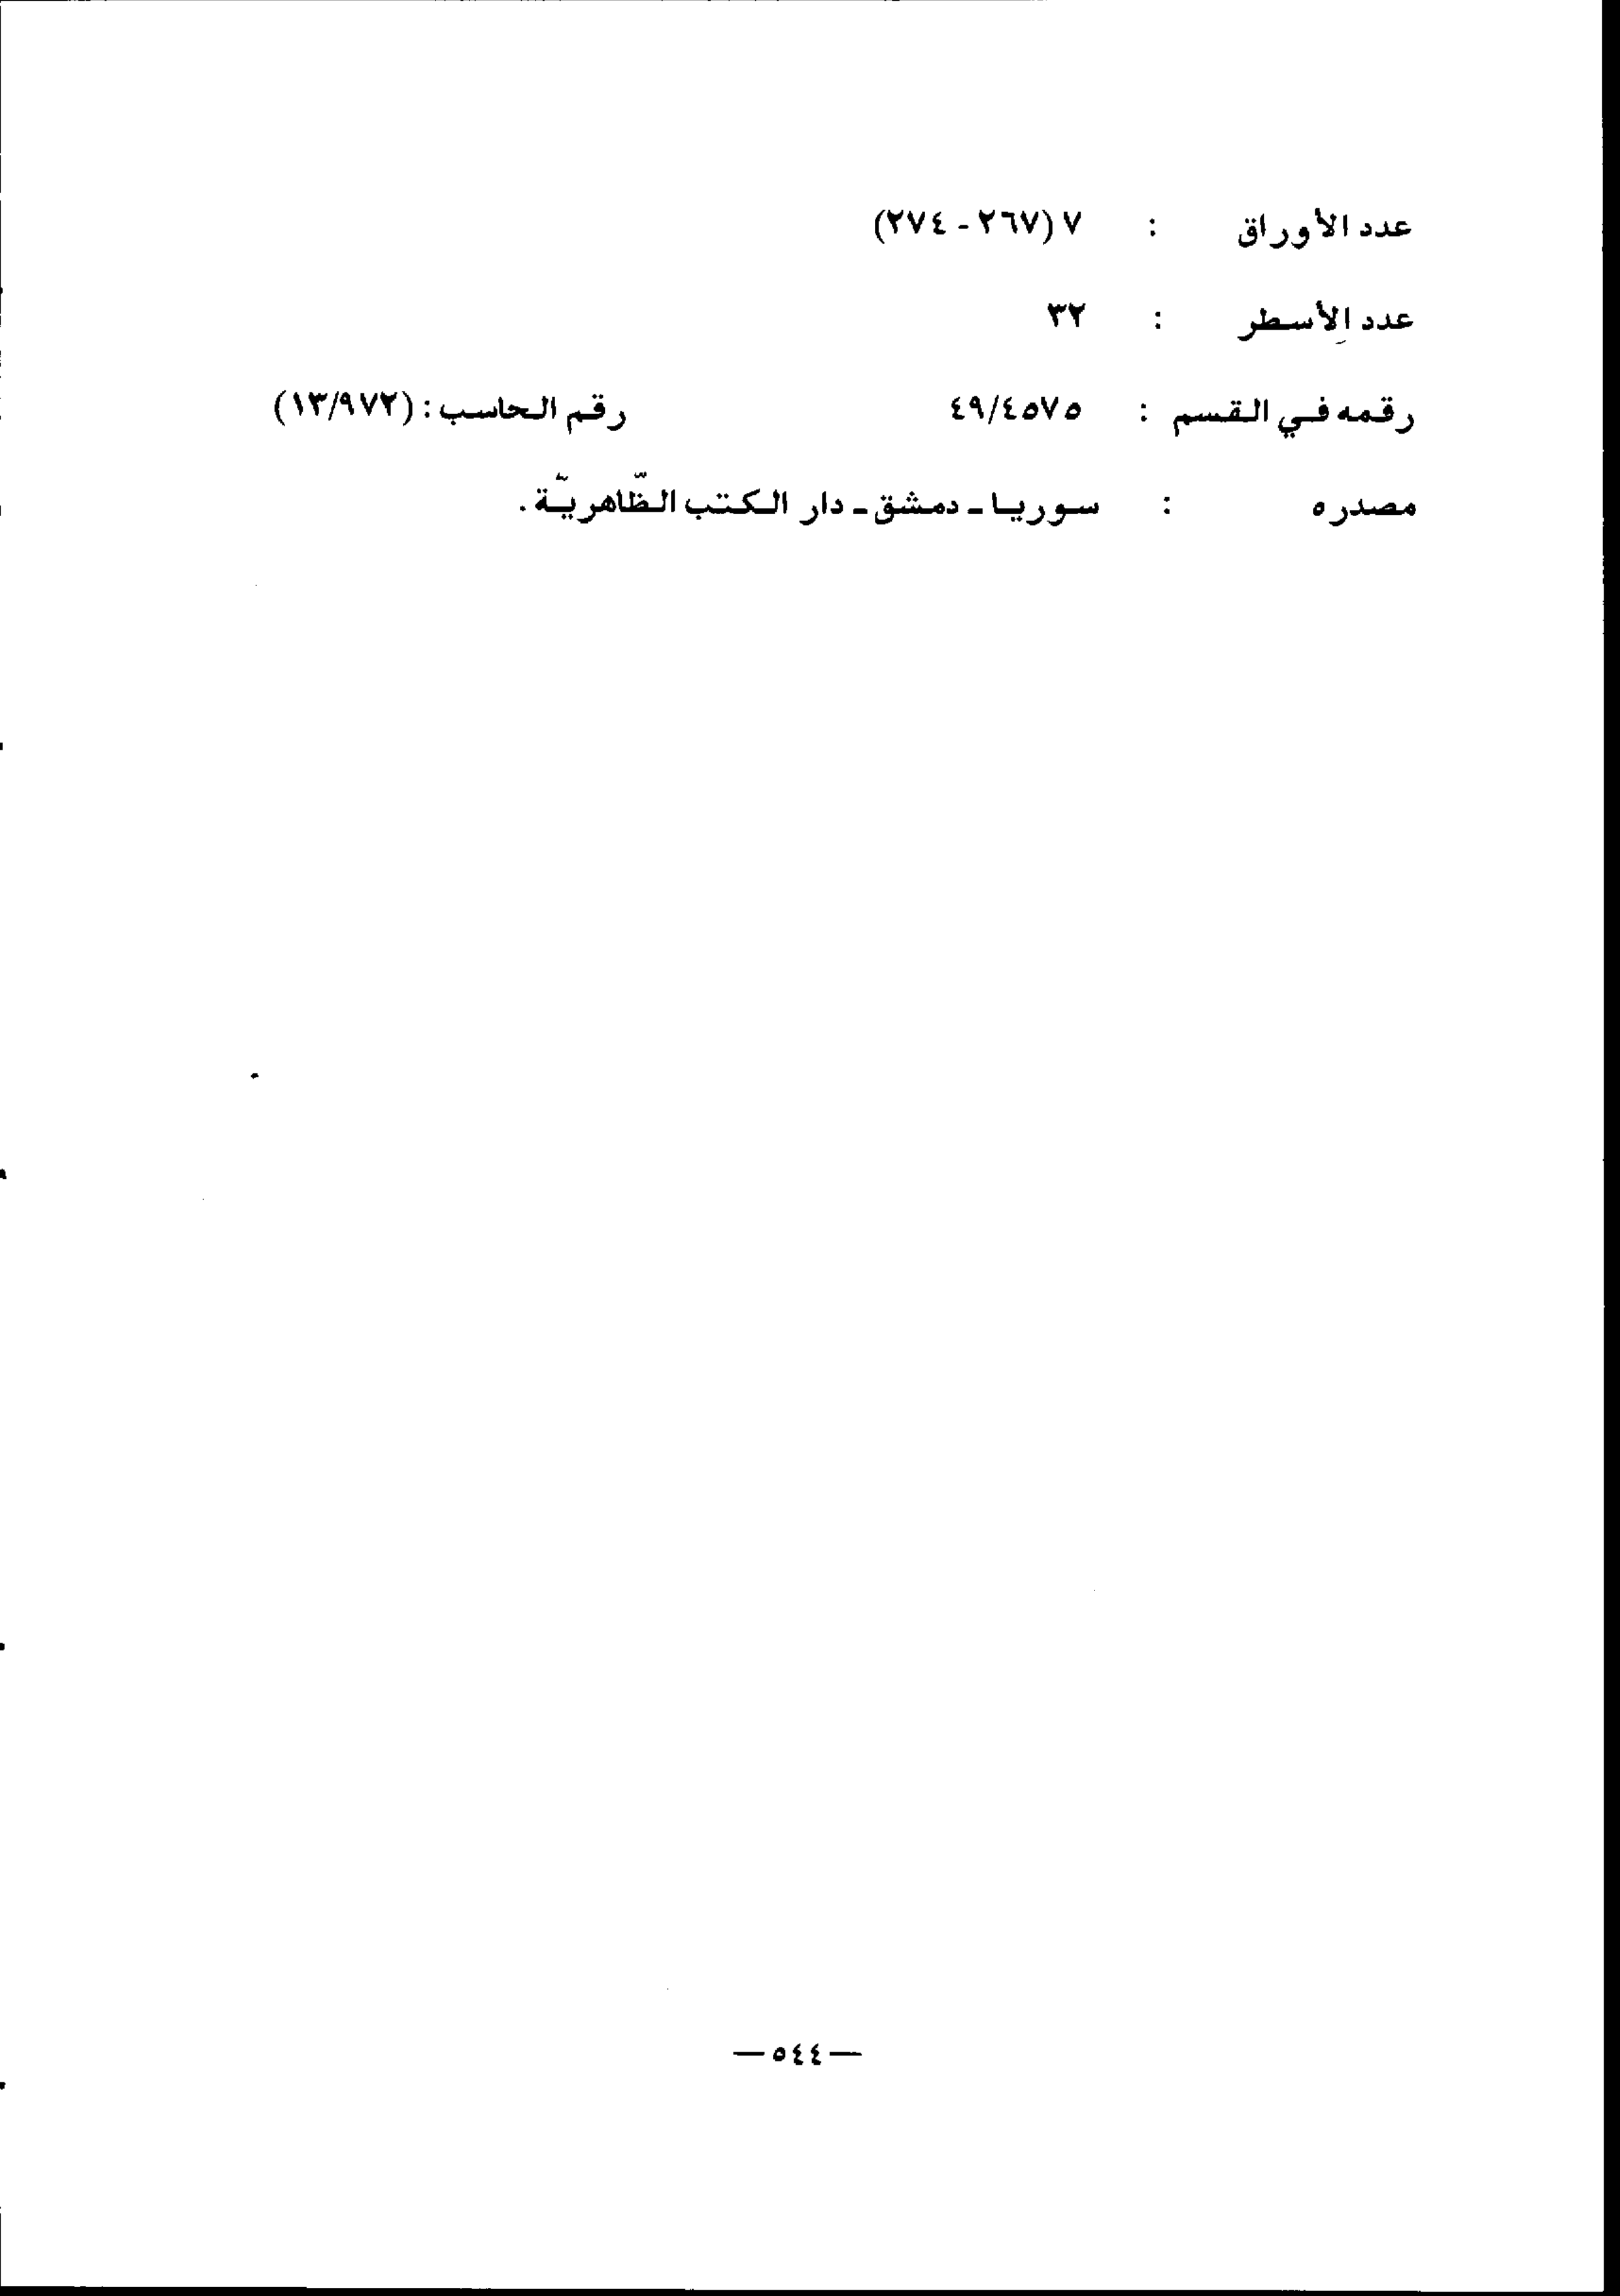 عدد الأوراق : ٧ (٢٦٧ - ٢٧٤)
عدد الأسطر : ٣٢
رقمه في القسم : ٤٩/٤٥٧٥ رقم الحاسب : (١٣/٩٧٢)
مصدره : سوريا ـ دمشق ـ دار الكتب الظّاهريّة .
— ٥٤٤ —